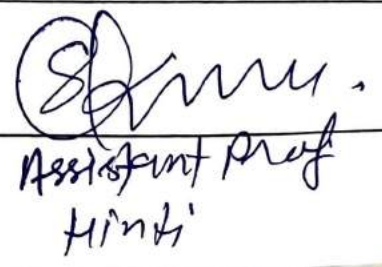 Assistant Prof
Hindi